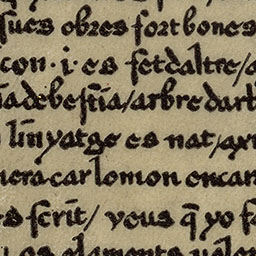 sues obres fort bones
con · i · es fet daltre /
a de bestia / arbre darb
linyatge es nat / axi
nera car lo mon encar
s scrit / veus q̄ yo f
os elaments